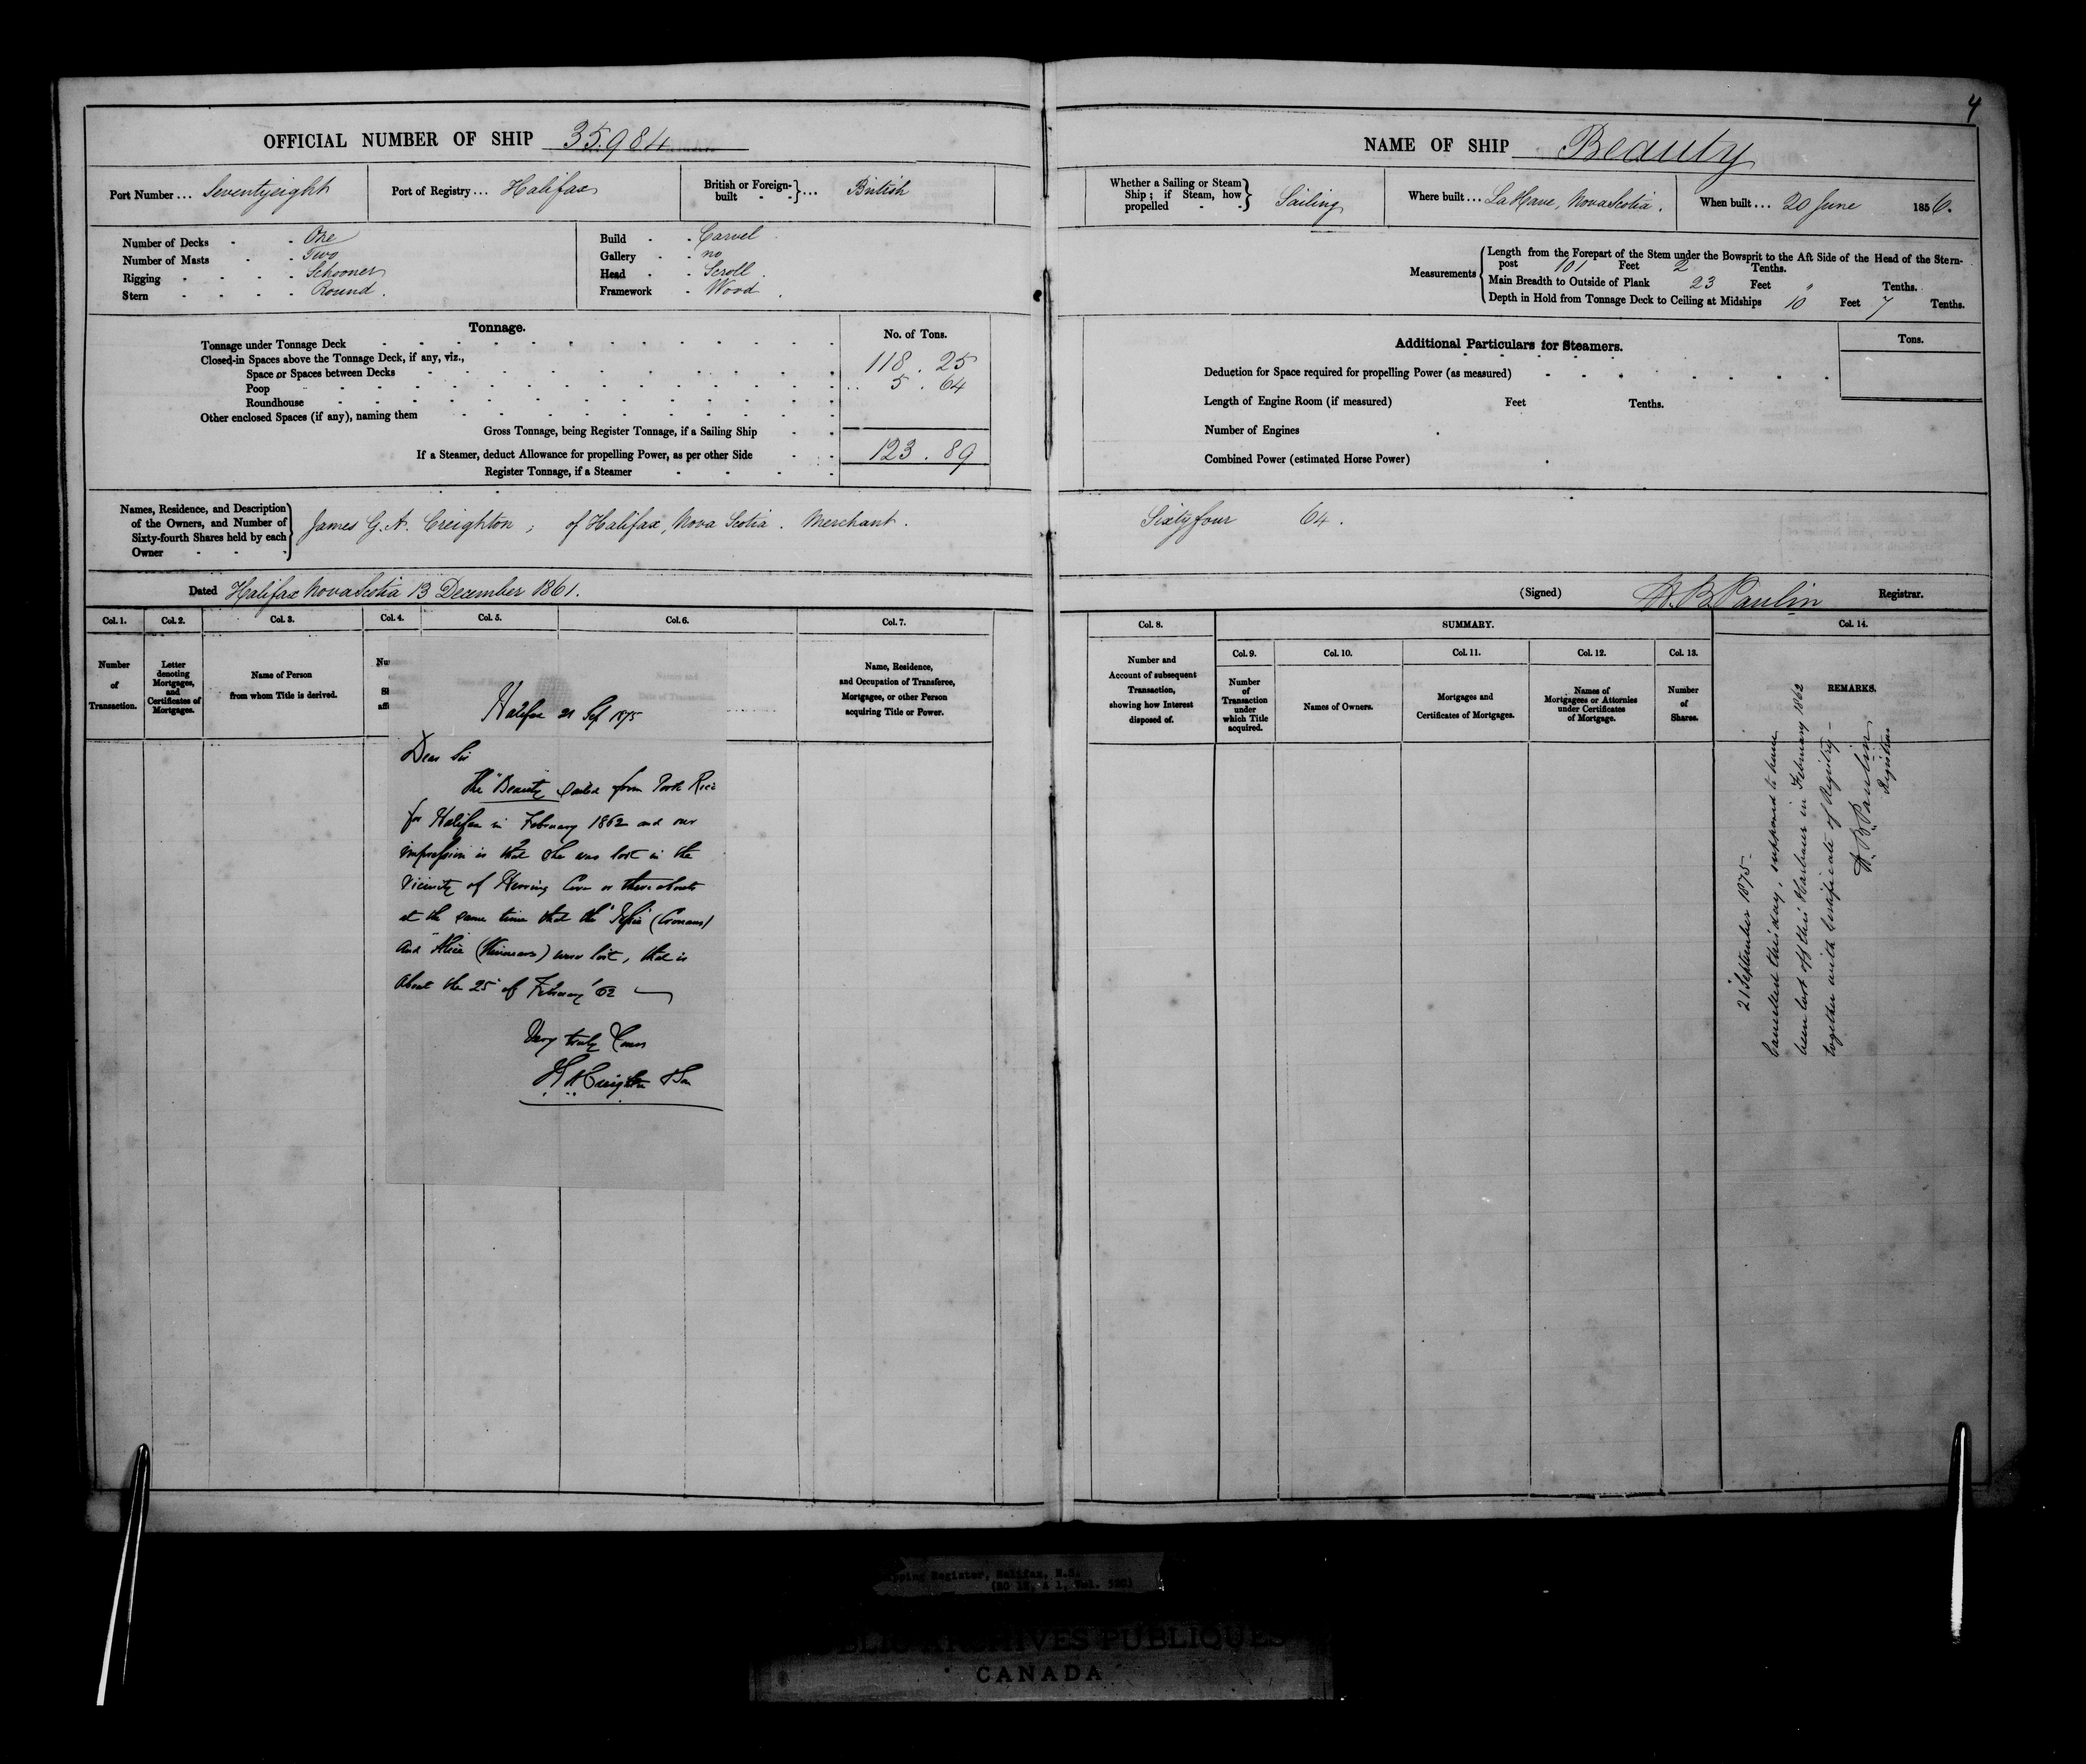 4
OFFICIAL NUMBER OF SHIP 35.984
NAME OF SHIP Beauty
Port Number ... Seventyeight
Port of Registry ... Halifax
British or Foreign-built ... British
Whether a Sailing or Steam Ship; if Steam, how propelled Sailing
Where built ... La Have, Nova Scotia.
When built ... 20 June 1856.
Number of Decks - - One
Number of Masts - - Two
Rigging - - - - Schooner
Stern - - - - Round.
Build - - Carvel
Gallery - - no
Head - - Scroll.
Framework - Wood.
Measurements
Length from the Forepart of the Stem under the Bowsprit to the Aft Side of the Head of the Stern-
post 101 Feet 2 Tenths.
Main Breadth to Outside of Plank 23 Feet " Tenths.
Depth in Hold from Tonnage Deck to Ceiling at Midships 10 Feet 7 Tenths.
Tonnage.
No. of Tons.
Tonnage under Tonnage Deck
Closed-in Spaces above the Tonnage Deck, if any, viz.,
118.25
Space or Spaces between Decks
Poop
5.64
Roundhouse
Other enclosed Spaces (if any), naming them
Gross Tonnage, being Register Tonnage, if a Sailing Ship
If a Steamer, deduct Allowance for propelling Power, as per other Side
123.89
Register Tonnage, if a Steamer
Additional Particulars for Steamers.
Tons.
Deduction for Space required for propelling Power (as measured)
Length of Engine Room (if measured) Feet Tenths.
Number of Engines
Combined Power (estimated Horse Power)
Names, Residence, and Description
of the Owners, and Number of
Sixty-fourth Shares held by each
Owner
James G. A. Creighton; of Halifax, Nova Scotia. Merchant.
Sixtyfour 64.
Dated Halifax Nova Scotia 13 December 1861.
(Signed) H. B. Paulin Registrar.
Col. 1.
Col. 2.
Col. 3.
Col. 4.
Col. 5.
Col. 6.
Col. 7.
Col. 8.
SUMMARY.
Col. 14.
Col. 9.
Col. 10.
Col. 11.
Col. 12.
Col. 13.
Number
of
Transaction.
Letter
denoting
Mortgages,
and
Certificates of
Mortgages.
Name of Person
from whom Title is derived.
Name, Residence,
and Occupation of Transferee,
Mortgagee, or other Person
acquiring Title or Power.
Number and
Account of subsequent
Transaction,
showing how Interest
disposed of.
Number
of
Transaction
under
which Title
acquired.
Names of Owners.
Mortgages and
Certificates of Mortgages.
Names of
Mortgagees or Attornies
under Certificates
of Mortgage.
Number
of
Shares.
REMARKS.
Halifax 21 Sep 1875
Dear Sir
The "Beauty" sailed from Porto Rico
for Halifax in February 1862 and our
impression is that she was lost in the
Vicinity of Herring Cove or thereabouts
at the same time that the
and "Alice" were lost, that is
about the 25 of February '62
Very truly Yours
Creighton & Son
21 September 1875 -
Cancelled this day, supposed to have
been lost off this Harbour in February 1862
together with Certificate of Registry -
H. B. Paulin
Registrar
Shipping Register, Halifax, N.S.
(RG 12, A 1, Vol. )
PUBLIC ARCHIVES PUBLIQUES
CANADA